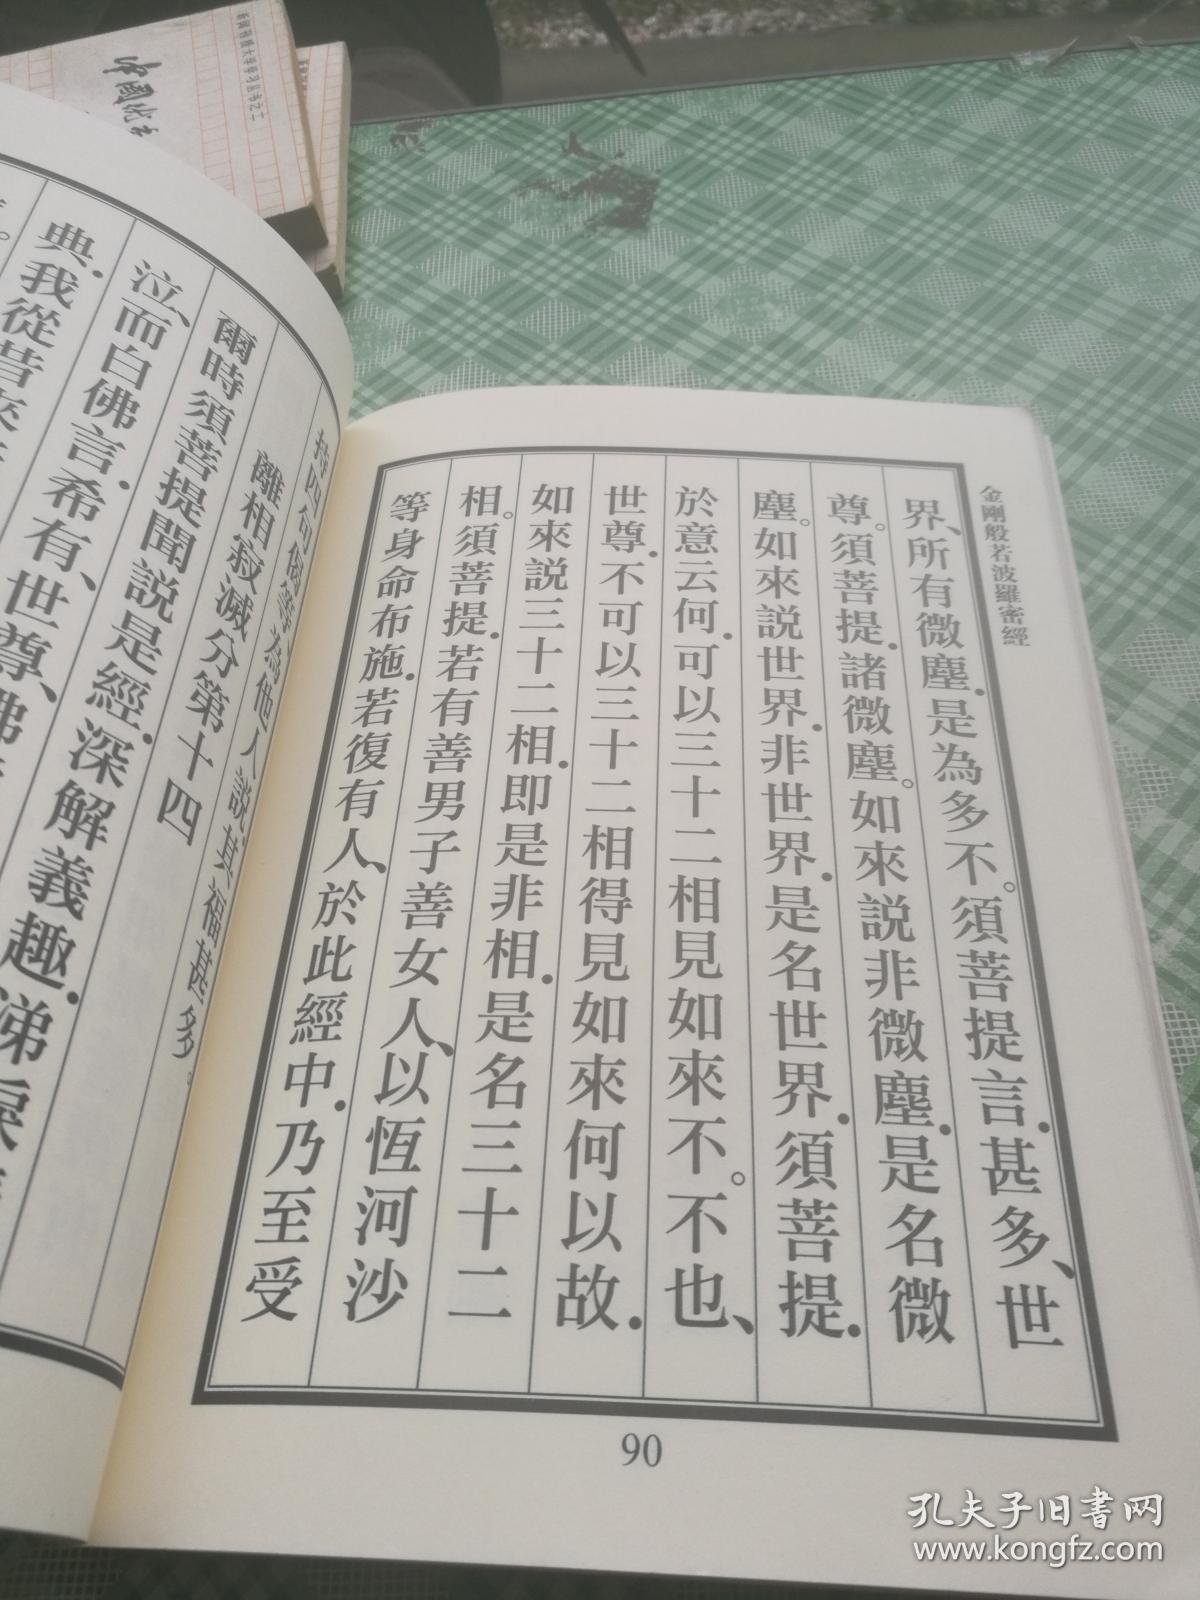 金剛般若波羅密經
界、所有微塵.是為多不。須菩提言.甚多、世
尊。須菩提.諸微塵。如來說非微塵.是名微
塵。如來說世界.非世界.是名世界.須菩提.
於意云何.可以三十二相見如來不。不也、
世尊.不可以三十二相得見如來何以故.
如來說三十二相.即是非相.是名三十二
相。須菩提.若有善男子善女人、以恆河沙
等身命布施.若復有人、於此經中.乃至受
90
持四句偈等為他人說其福甚多。
離相寂滅分第十四
爾時須菩提聞說是經.深解義趣.涕淚
泣、而白佛言.希有、世尊、佛
典.我從昔來
中國
孔夫子旧书网
www.kongfz.com